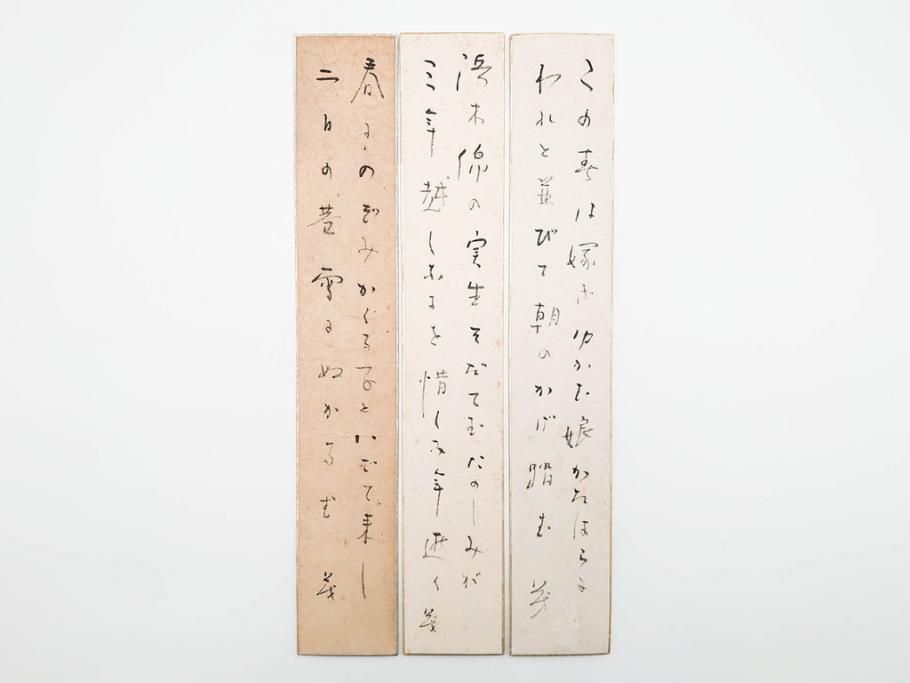 この春は嫁にゆかむ娘かたはらに
われと並びて朝のかげ踏む 茂
浜木綿の実生そだてむたのしみが
三年越しなを惜しみ年逝く 茂
春にのぞみかくる子といでて来し
二日の巷雪にぬかるむ 茂